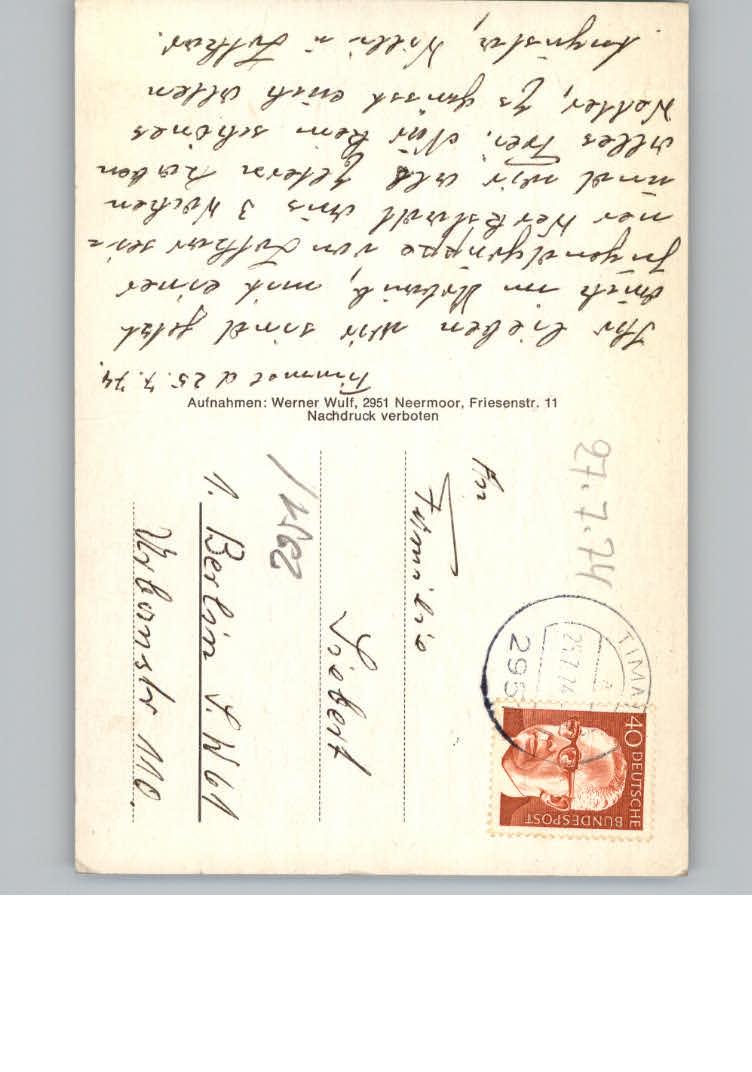 Timmel d 25.7.74.
Ihr Lieben wir sind jetzt
auch im Urlaub, mit einer
Jugendgruppe von Lothar sei=
ner Werkstadt aus 3 Wochen
und wir als Eltern haben
alles Frei. Nur kein schönes
Wetter, Es grüsst euch allen
Augusta, Willi u Lothar.
Aufnahmen: Werner Wulf, 2951 Neermoor, Friesenstr. 11
Nachdruck verboten
An
Familie
Siebert
1. Berlin S.W 61
Urbanstr 110.
27.7.74
TIMM
25.7.74
295
40 DEUTSCHE
BUNDESPOST